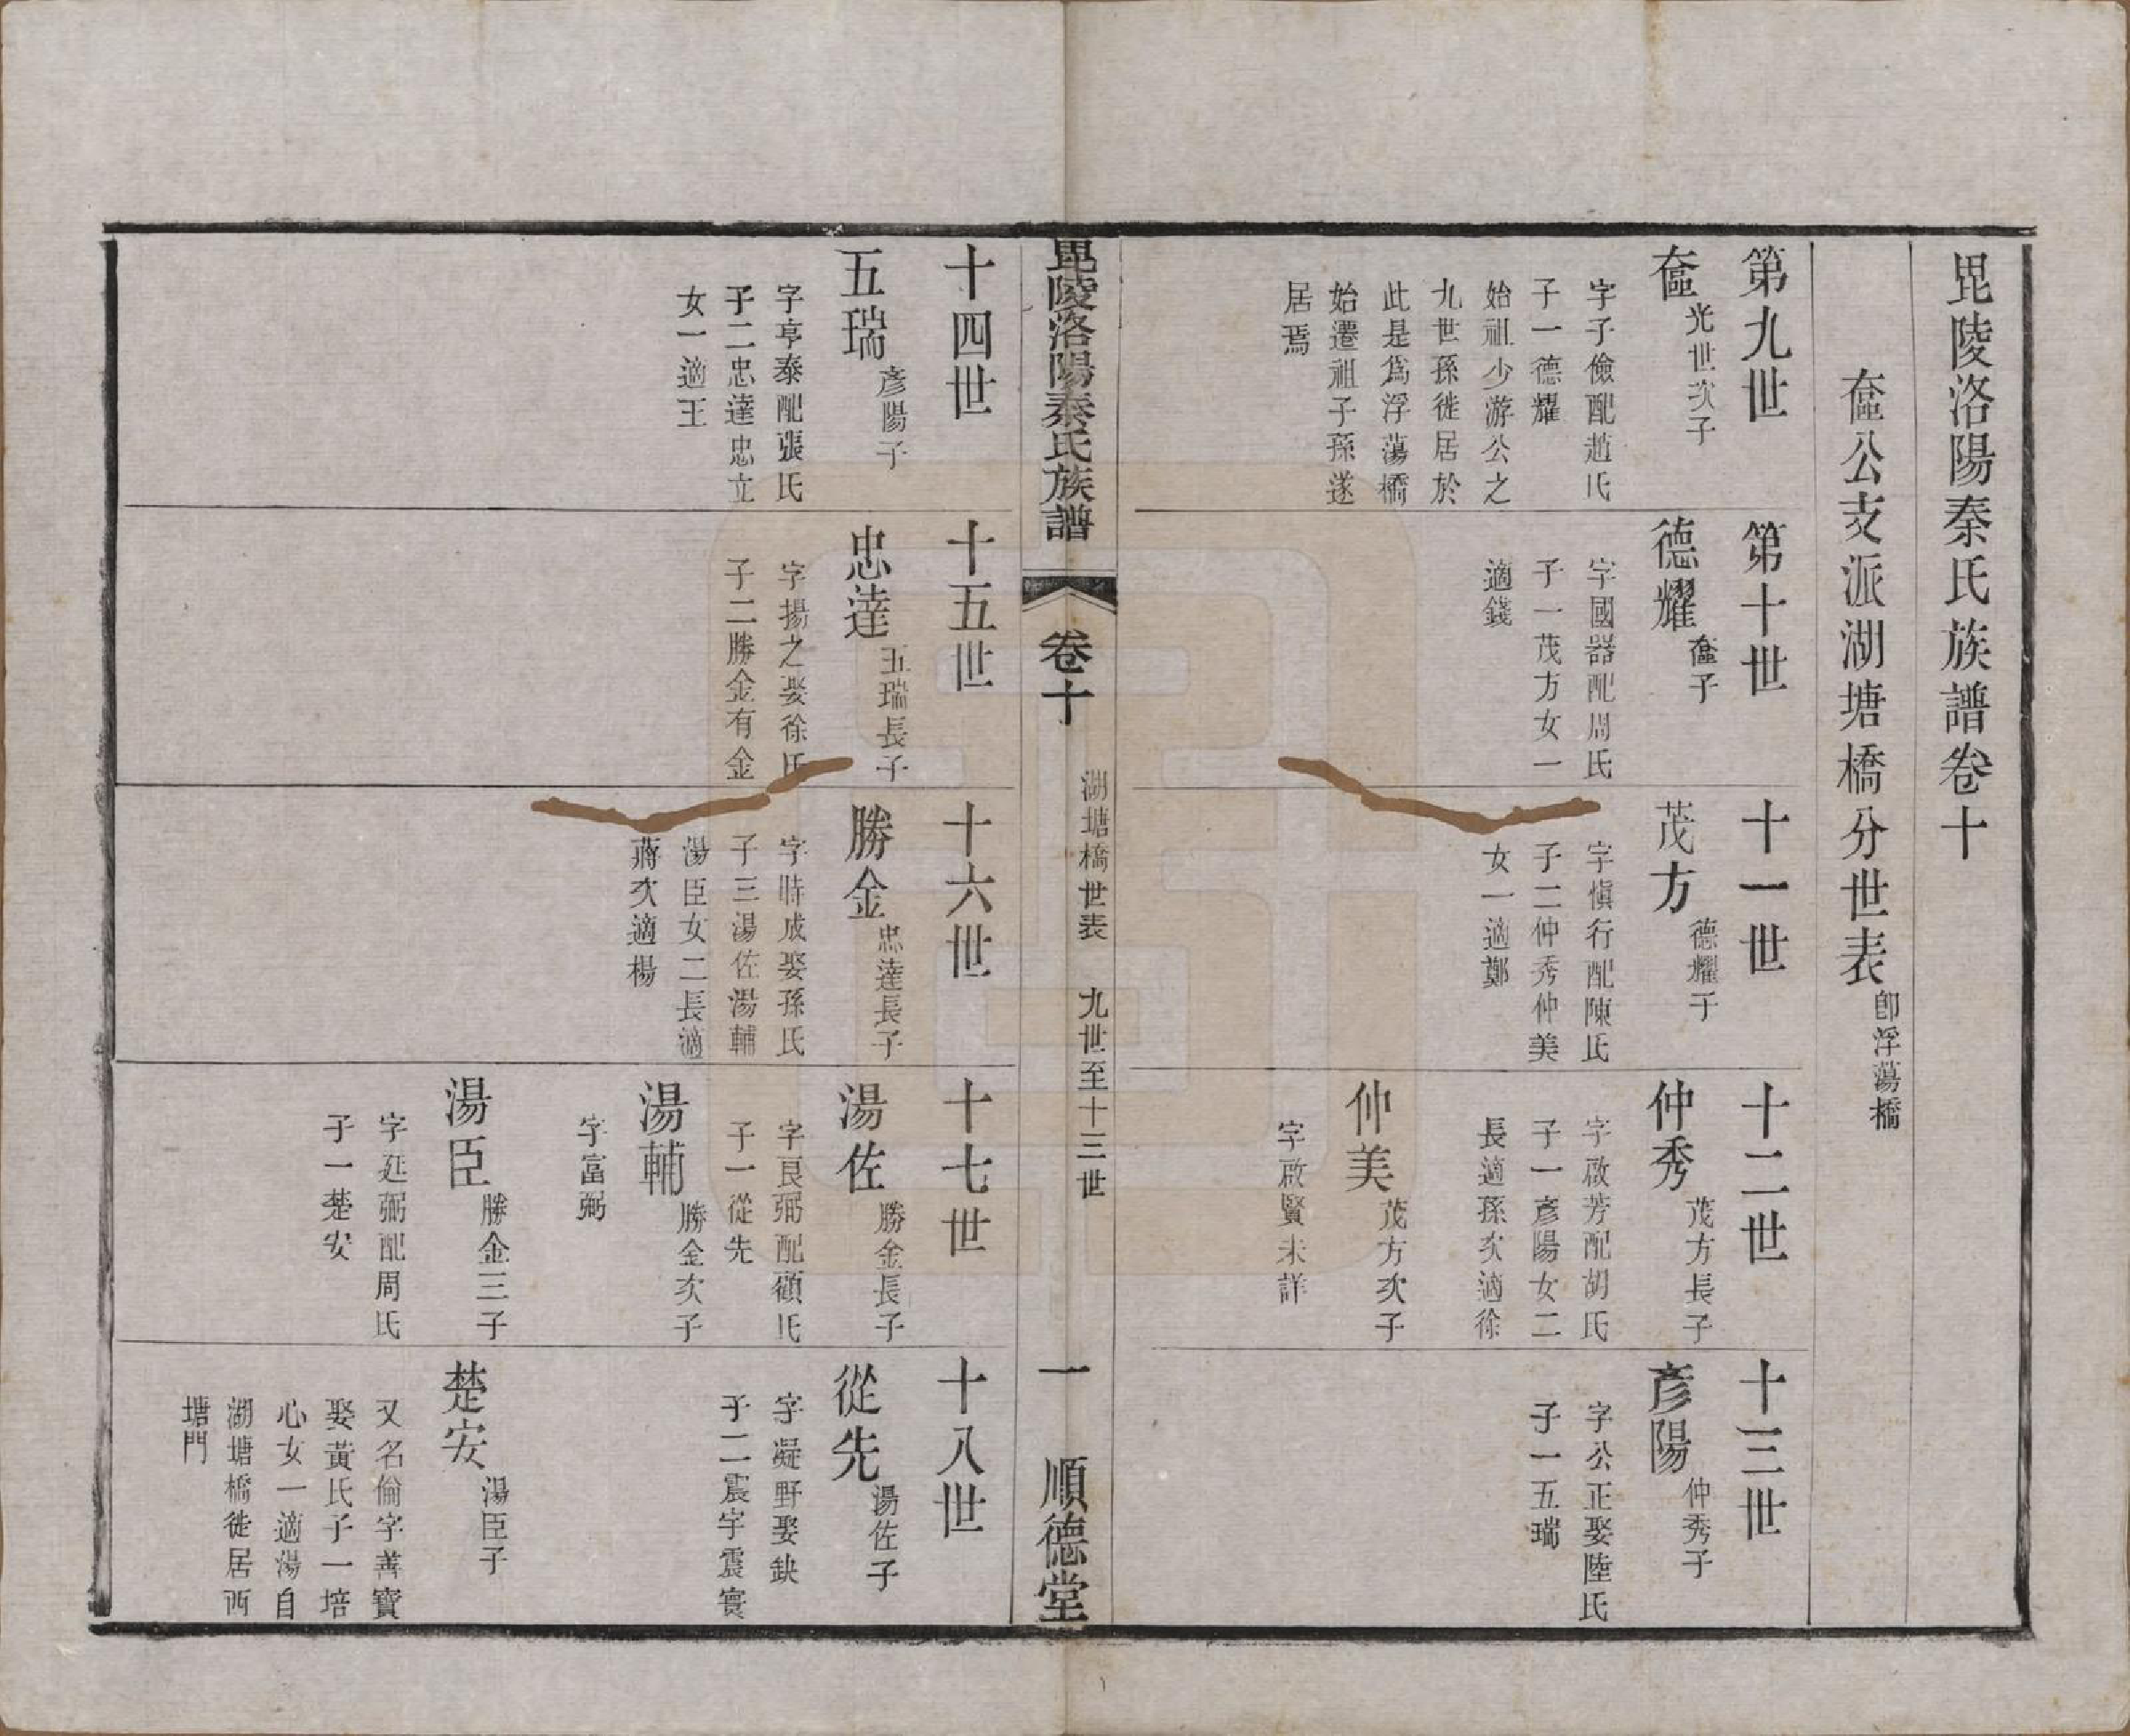 毘陵洛陽秦氏族譜卷十
奩公支派湖塘橋分世表
卽浮蕩橋
第九世
奩
光世次子
字子儉配趙氏
子一德耀
始祖少游公之
九世孫徙居於
此是爲浮蕩橋
始遷祖子孫遂
居焉
第十世
德耀
奩子
字國器配周氏
子一茂方女一
適錢
十一世
茂方
德耀子
字愼行配陳氏
子二仲秀仲美
女一適鄭
十二世
仲秀
茂方長子
字啟芳配胡氏
子一彥陽女二
長適孫次適徐
仲美
茂方次子
字啟賢未詳
十三世
彥陽
仲秀子
字公正娶陸氏
子一五瑞
毘陵洛陽秦氏族譜
卷十
湖塘橋世表
九世至十三世
一
順德堂
十四世
五瑞
彥陽子
字亨泰配張氏
子二忠達忠立
女一適王
十五世
忠達
五瑞長子
字揚之娶徐氏
子二勝金有金
十六世
勝金
忠達長子
字時成娶孫氏
子三湯佐湯輔
湯臣女二長適
蔣次適楊
十七世
湯佐
勝金長子
字良弼配顧氏
子一從先
湯輔
勝金次子
字富弼
湯臣
勝金三子
字廷弼配周氏
子一楚安
十八世
從先
湯佐子
字凝野娶缺
子二震宇震寰
楚安
湯臣子
又名倫字善寶
娶黃氏子一培
心女一適湯自
湖塘橋徙居西
塘門